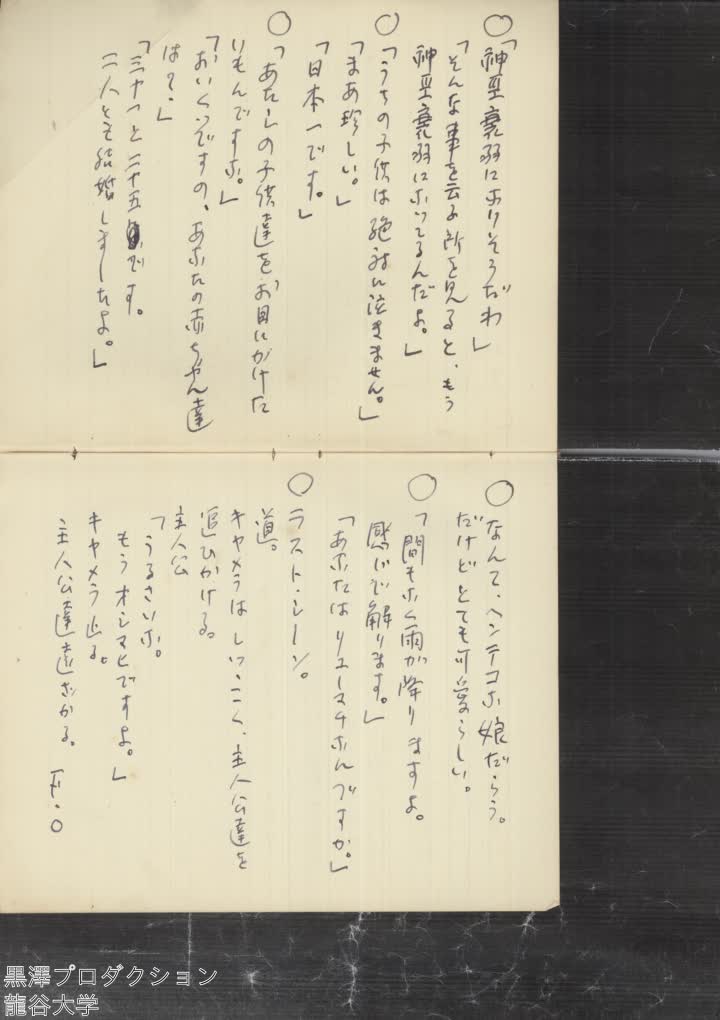 ○「神経衰弱になりそうだわ」
「そんな事を云う所を見ると、もう
神経衰弱になってるんだよ。」
○「うちの子供は絶対に泣きません。」
「まあ珍しい。」
「日本一です。」
○「あたしの子供達をお目にかけた
いもんですな。」
「おいくつですの、あなたの赤ちゃん達
は?」
「三十一と二十五です。
二人とも結婚しましたよ。」
○なんて、ヘンテコな娘だらう。
だけどとても可愛らしい。
○「間もなく雨が降りますよ。
感じで解ります。」
「あなたはリューマチなんですか。」
○ラスト・シーン。
道。
キャメラはしつこく、主人公達を
追ひかける。
主人公
「うるさいな。
もうオシマヒですよ。」
キャメラ止る。
主人公達遠ざかる。 F・O
黒澤プロダクション
龍谷大学